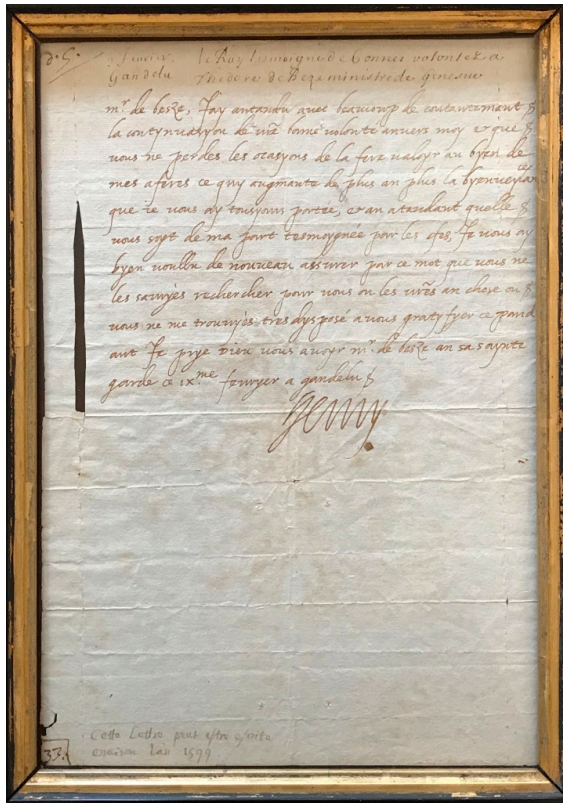 d. G.
9 feurier. le Roy tesmoigne de bonnes volontez a
Gandelu Theodore de Beze ministre de Geneue
mr. de besze, J'ay antandu avec beaucoup de contantemant
la contynuatyon de vre bonne volonte anvers moy & que
vous ne perdes les ocasyons de la fere valoyr au byen de
mes aferes ce quy augmante de plus an plus la byenveyllance
que ie vous ay tousyours portée, & an atandant quelle
vous soyt de ma part tesmoygnée par les efes, Je vous ay
byen voullu de nouveau assurer par ce mot que vous ne
les sauryes rechercher pour vous ou les vres an chose ou
vous ne me trouvyes tres dysposé a vous gratyfyer ce pand
ant Je prye dieu vous avoyr mr. de besze an sa saynte
garde ce ixme fevryer a gandelu
Henry
Cette Lettre peut estre escritte
enuiron l'an 1599
33.